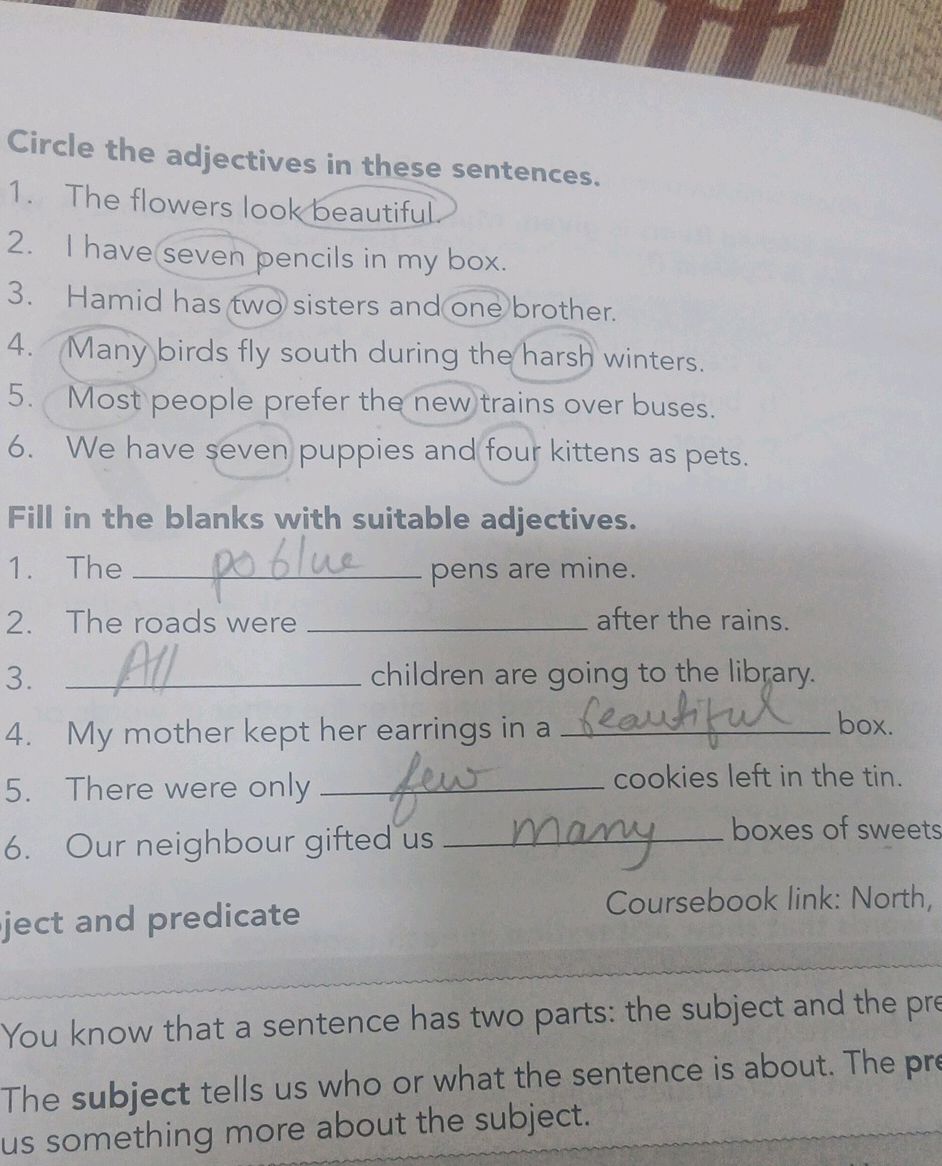 Circle the adjectives in these sentences.
1. The flowers look beautiful.
2. I have seven pencils in my box.
3. Hamid has two sisters and one brother.
4. Many birds fly south during the harsh winters.
5. Most people prefer the new trains over buses.
6. We have seven puppies and four kittens as pets.
Fill in the blanks with suitable adjectives.
1. The po blue pens are mine.
2. The roads were ____________ after the rains.
3. All children are going to the library.
4. My mother kept her earrings in a beautiful box.
5. There were only few cookies left in the tin.
6. Our neighbour gifted us many boxes of sweets
ject and predicate Coursebook link: North,
You know that a sentence has two parts: the subject and the pre
The subject tells us who or what the sentence is about. The pre
us something more about the subject.